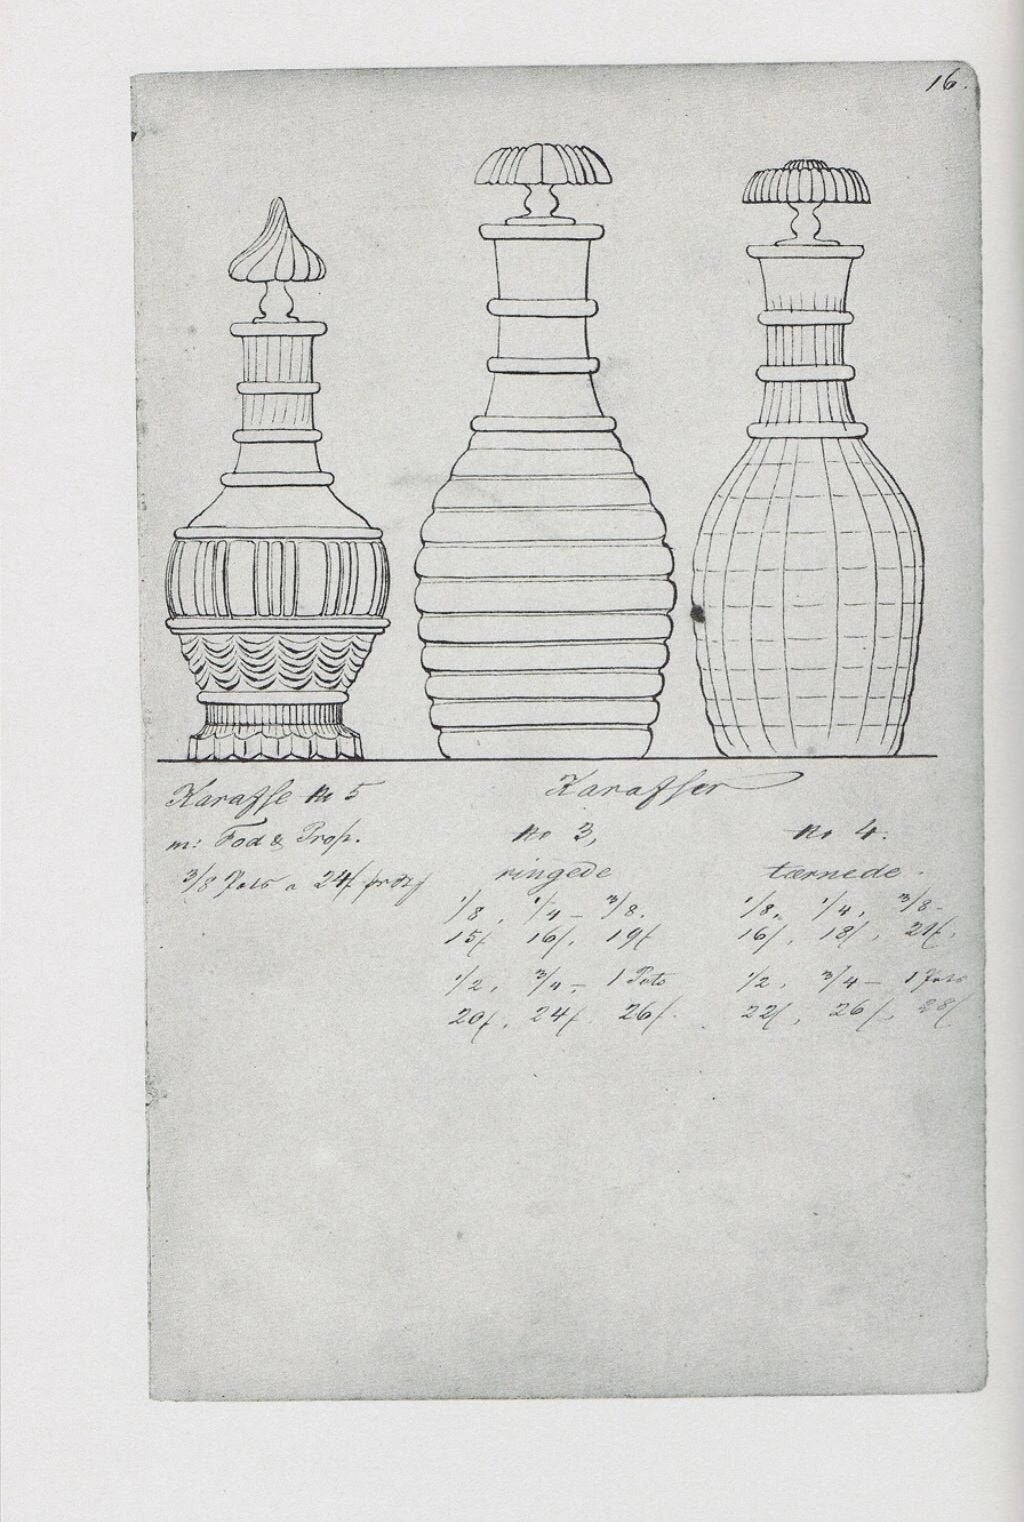 16.
Karaffe No 5
m: Fod & Prop.
3/8 Pots a 24ſ
Karaffer
No 3,
ringede
1/8, 1/4 – 3/8.
15ſ 16ſ, 19ſ
1/2, 3/4 – 1 Pots
20ſ, 24ſ 26ſ.
No 4.
tærnede.
1/8, 1/4, 3/8 –
16ſ, 18ſ, 21ſ.
1/2, 3/4 – 1 Pots
22ſ, 26ſ, 28ſ